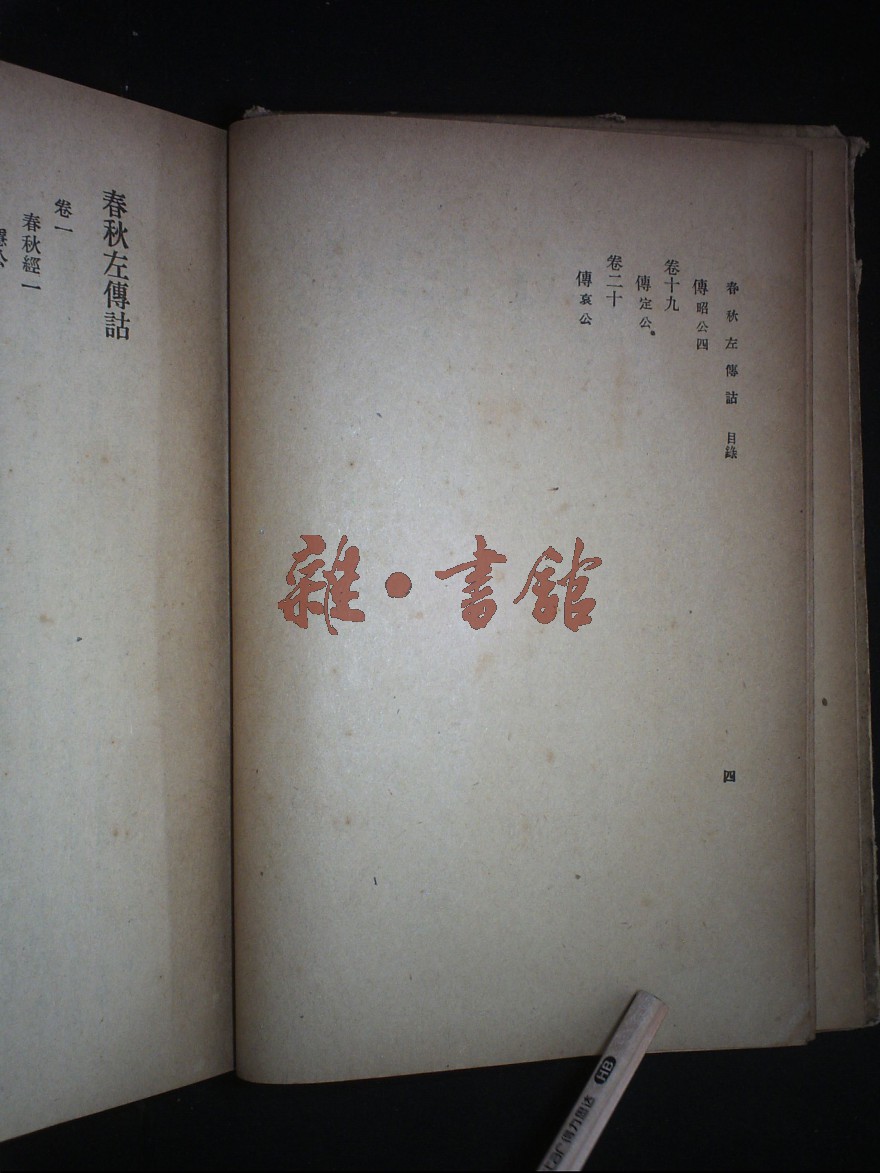 春秋左傳詁 目錄
傳昭公四
卷十九
傳定公
卷二十
傳哀公
四
春秋左傳詁
卷一
春秋經一
雜•書館
HB